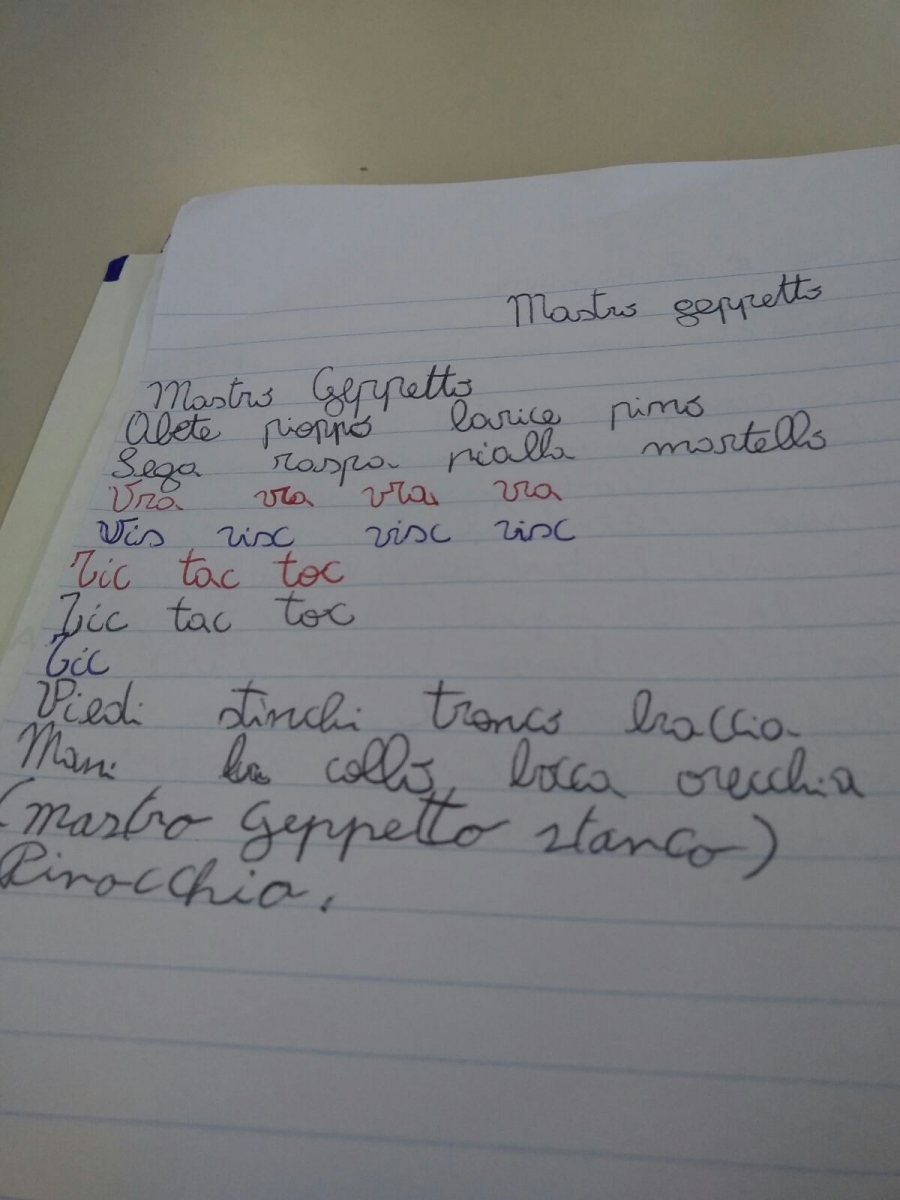 Mastro geppetto
Mastro Geppetto
Abete pioppo larice pino
Sega raspa pialla martello
Vra vra vra vra
Vis visc visc visc
Tic tac toc
Tic tac toc
Tic
Piedi stinchi tronco braccia
Mani collo bocca orecchia
(mastro Geppetto stanco)
Pinocchia.